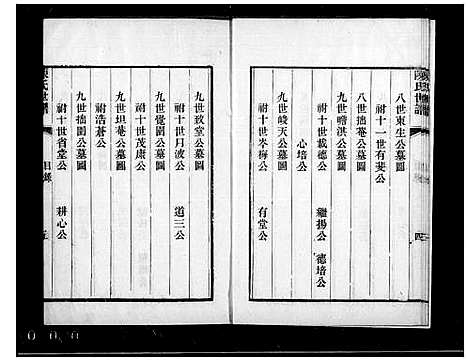 陳氏世譜
八世東生公墓圖
祔十一世有斐公
八世拙菴公墓圖
祔十世載德公 繼揚公 德培公
九世瞻淇公墓圖
心培公
九世峻天公墓圖
祔十世岑梅公 有堂公
四
九世玫堂公墓圖
祔十世月波公 道三公
九世覺園公墓圖
祔十世茂康公
九世坦菴公墓圖
祔浩蒼公
九世拙園公墓圖
祔十世省堂公 耕心公
陳氏世譜
目錄
五
0 0 0